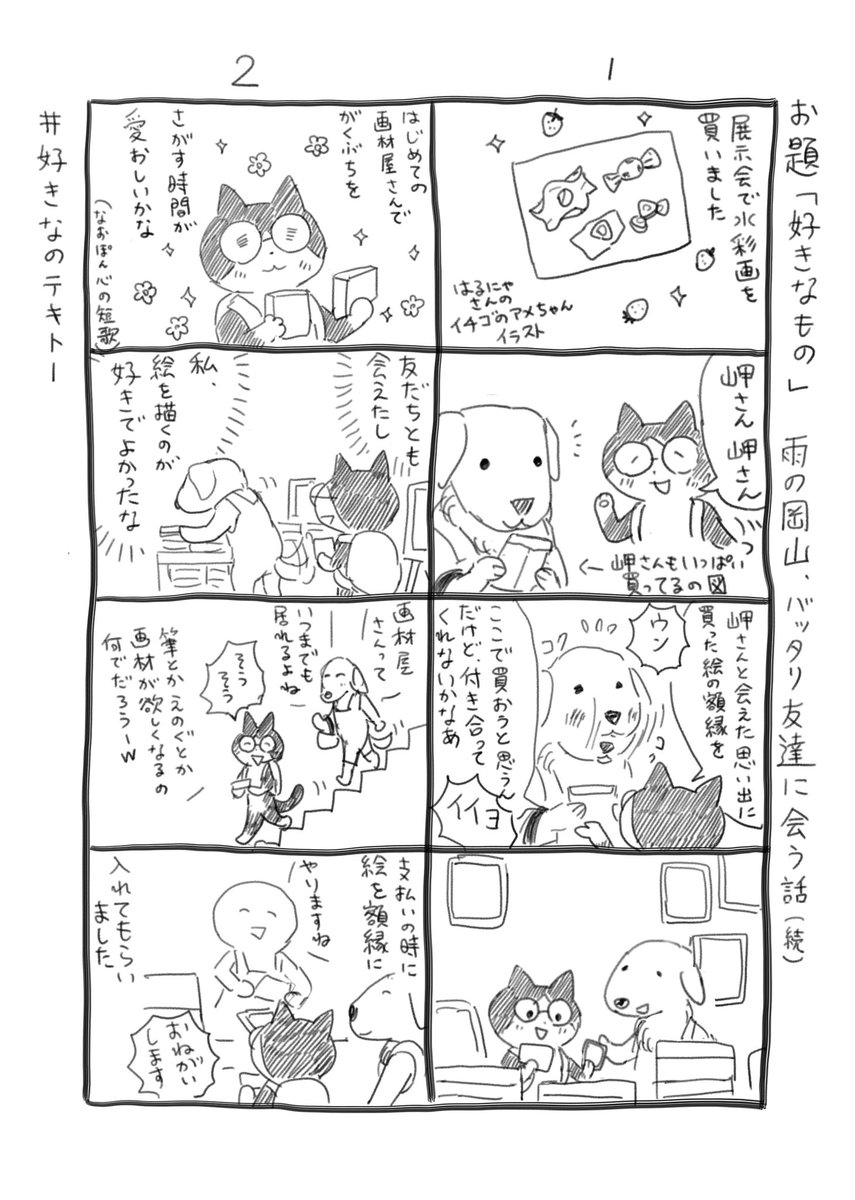 お題「好きなもの」 雨の岡山、バッタリ友達に会う話(続)
1
展示会で水彩画を
買いました
はるにゃ
さんの
イチゴのアメちゃん
イラスト
岬さん 岬さん
←岬さんもいっぱい
買ってるの図
岬さんと会えた思い出に
買った絵の額縁を
ウン
コク
コク
ここで買おうと思うん
だけど、付き合って
くれないかなあ
イイヨ
2
はじめての
画材屋さんで
がくぶちを
さがす時間が
愛おしいかな
(なおぽん心の短歌)
友だちとも
会えたし
私、
絵を描くのが
好きでよかったな
画材屋
さんって
いつまでも
居れるよね
そう
そう
筆とかえのぐとか
画材が欲しくなるの
何でだろうーw
支払いの時に
絵を額縁に
やりますね
入れてもらい
ました
おねがい
します
#好きなのテキトー